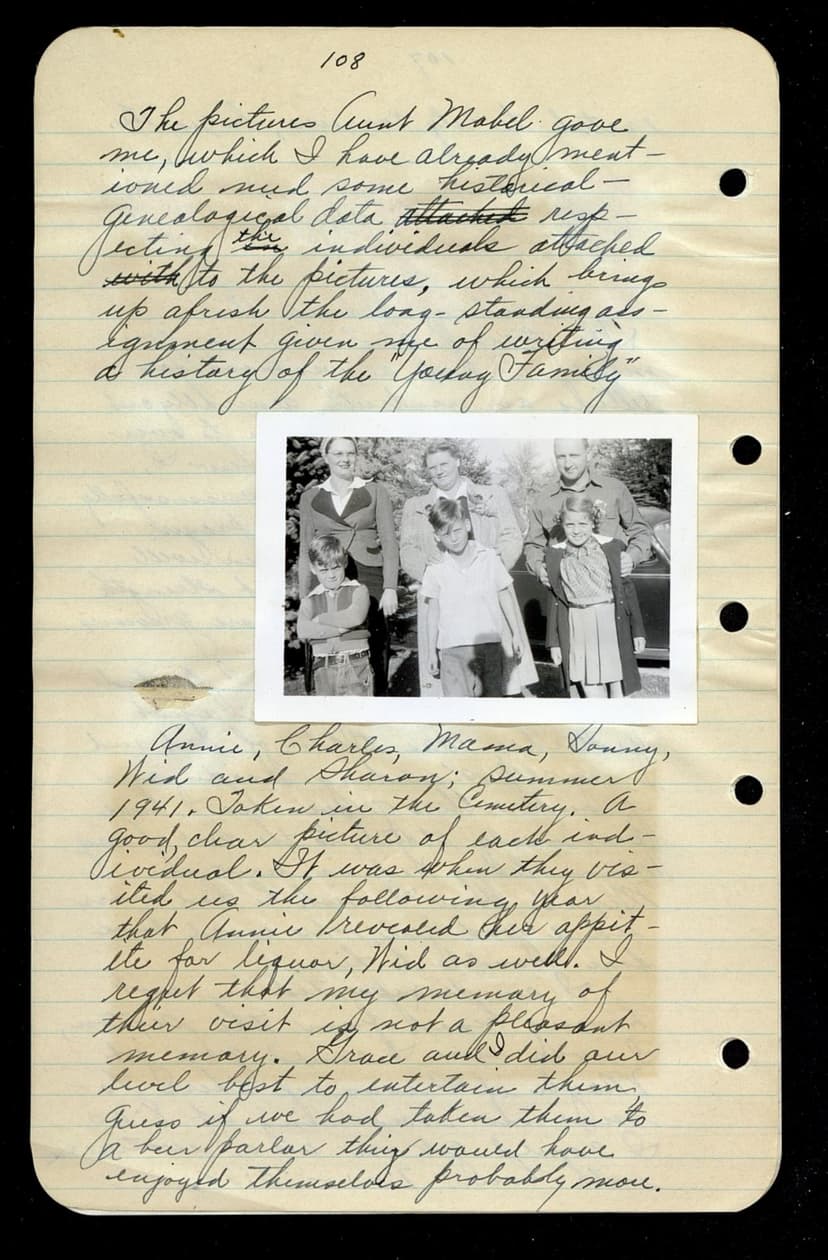 108
The pictures Aunt Mabel gave
me, which I have already ment-
ioned need some historical-
Genealogical data attached resp-
ecting the individuals attached
with to the pictures, which brings
up afresh the long-standing ass-
ignment given me of writing
a history of the "Young Family"
Annie, Charles, Mama, Sonny,
Wid and Sharon; summer
1941. Taken in the Cemetery. A
good, clear picture of each ind-
ividual. It was when they vis-
ited us the following year
that Annie revealed her appit-
ite for liquor, Wid as well. I
regret that my memory of
their visit is not a pleasant
memory. Grace and I did our
level best to entertain them
Guess if we had taken them to
a beer parlor they would have
enjoyed themselves probably more.